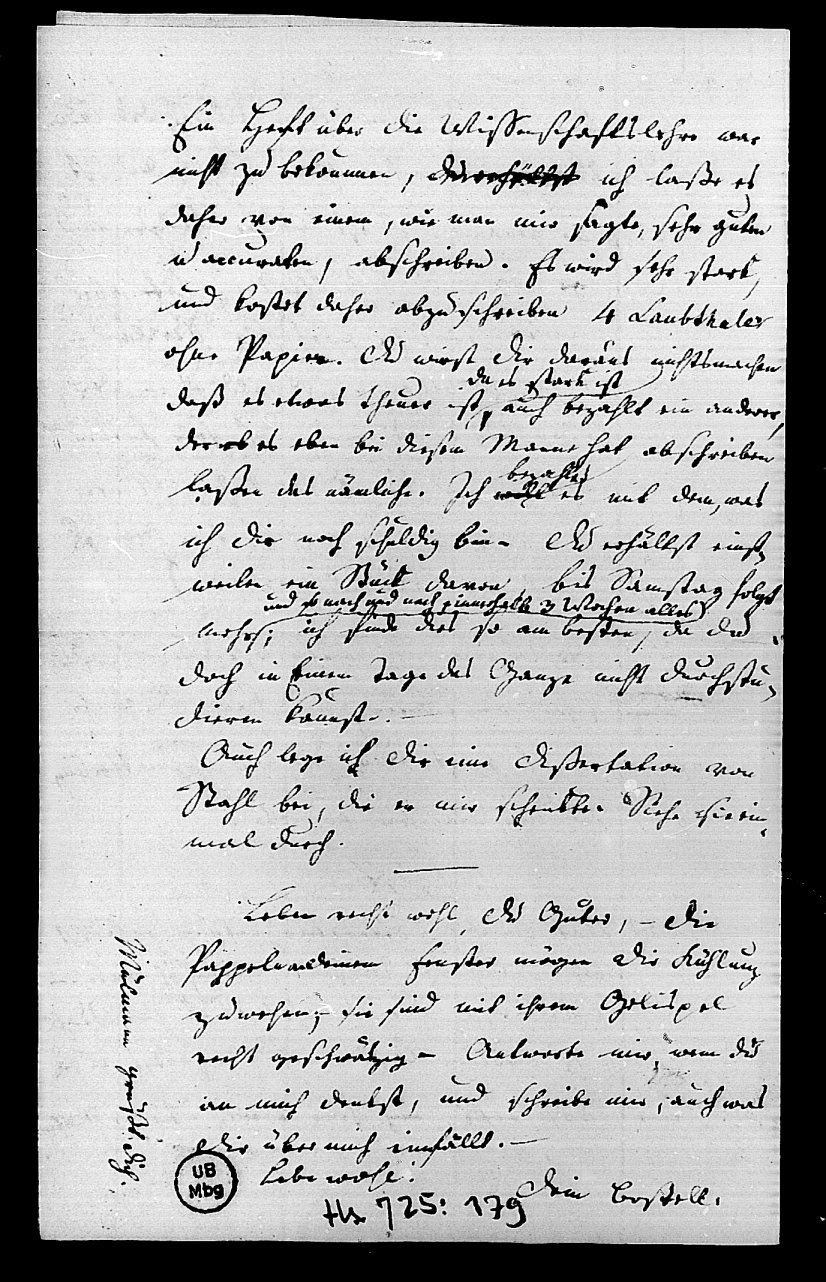 Ein Heft über die Wissenschaftslehre war
nicht zu bekommen, ich laße es
daher von einem, wie man mir sagte, sehr guten
u accuraten, abschreiben. Es wird sehr stark,
und kostet daher abzuschreiben 4 Laubthaler
ohne Papier. Du wirst dir daraus nichts machen
da es stark ist
daß es etwas theuer ist, auch bezahlt ein anderer,
der es eben bei diesem Manne hat abschreiben
bezahle
laßen das nämliche. Ich es mit dem, was
ich dir noch schuldig bin – Du erhältst einst,
weilen ein Stück davon bis Samstag folgt
und so nach und nach innerhalb 3 Wochen alles
mehr; ich finde dies so am besten, da du
doch in Einem Tage das Ganze nicht durchstu,
dieren kannst. –
Auch lege ich dir eine Dißertation von
Stahl bei, die er mir schenkte. Siehe sie ein,
mal durch.
Lebe recht wohl, Du Guter, – die
Pappeln an deinem Fenster mögen dir Kühlung
zuwehen; – sie sind mit ihrem Gelispel
recht geschwätzig – Antworte mir, wenn du
an mich denkst, und schreibe mir, auch was
dir über mich einfällt. –
Lebe wohl!
Dein
grüßt dich.
UB
Mbg
Hs 725: 179